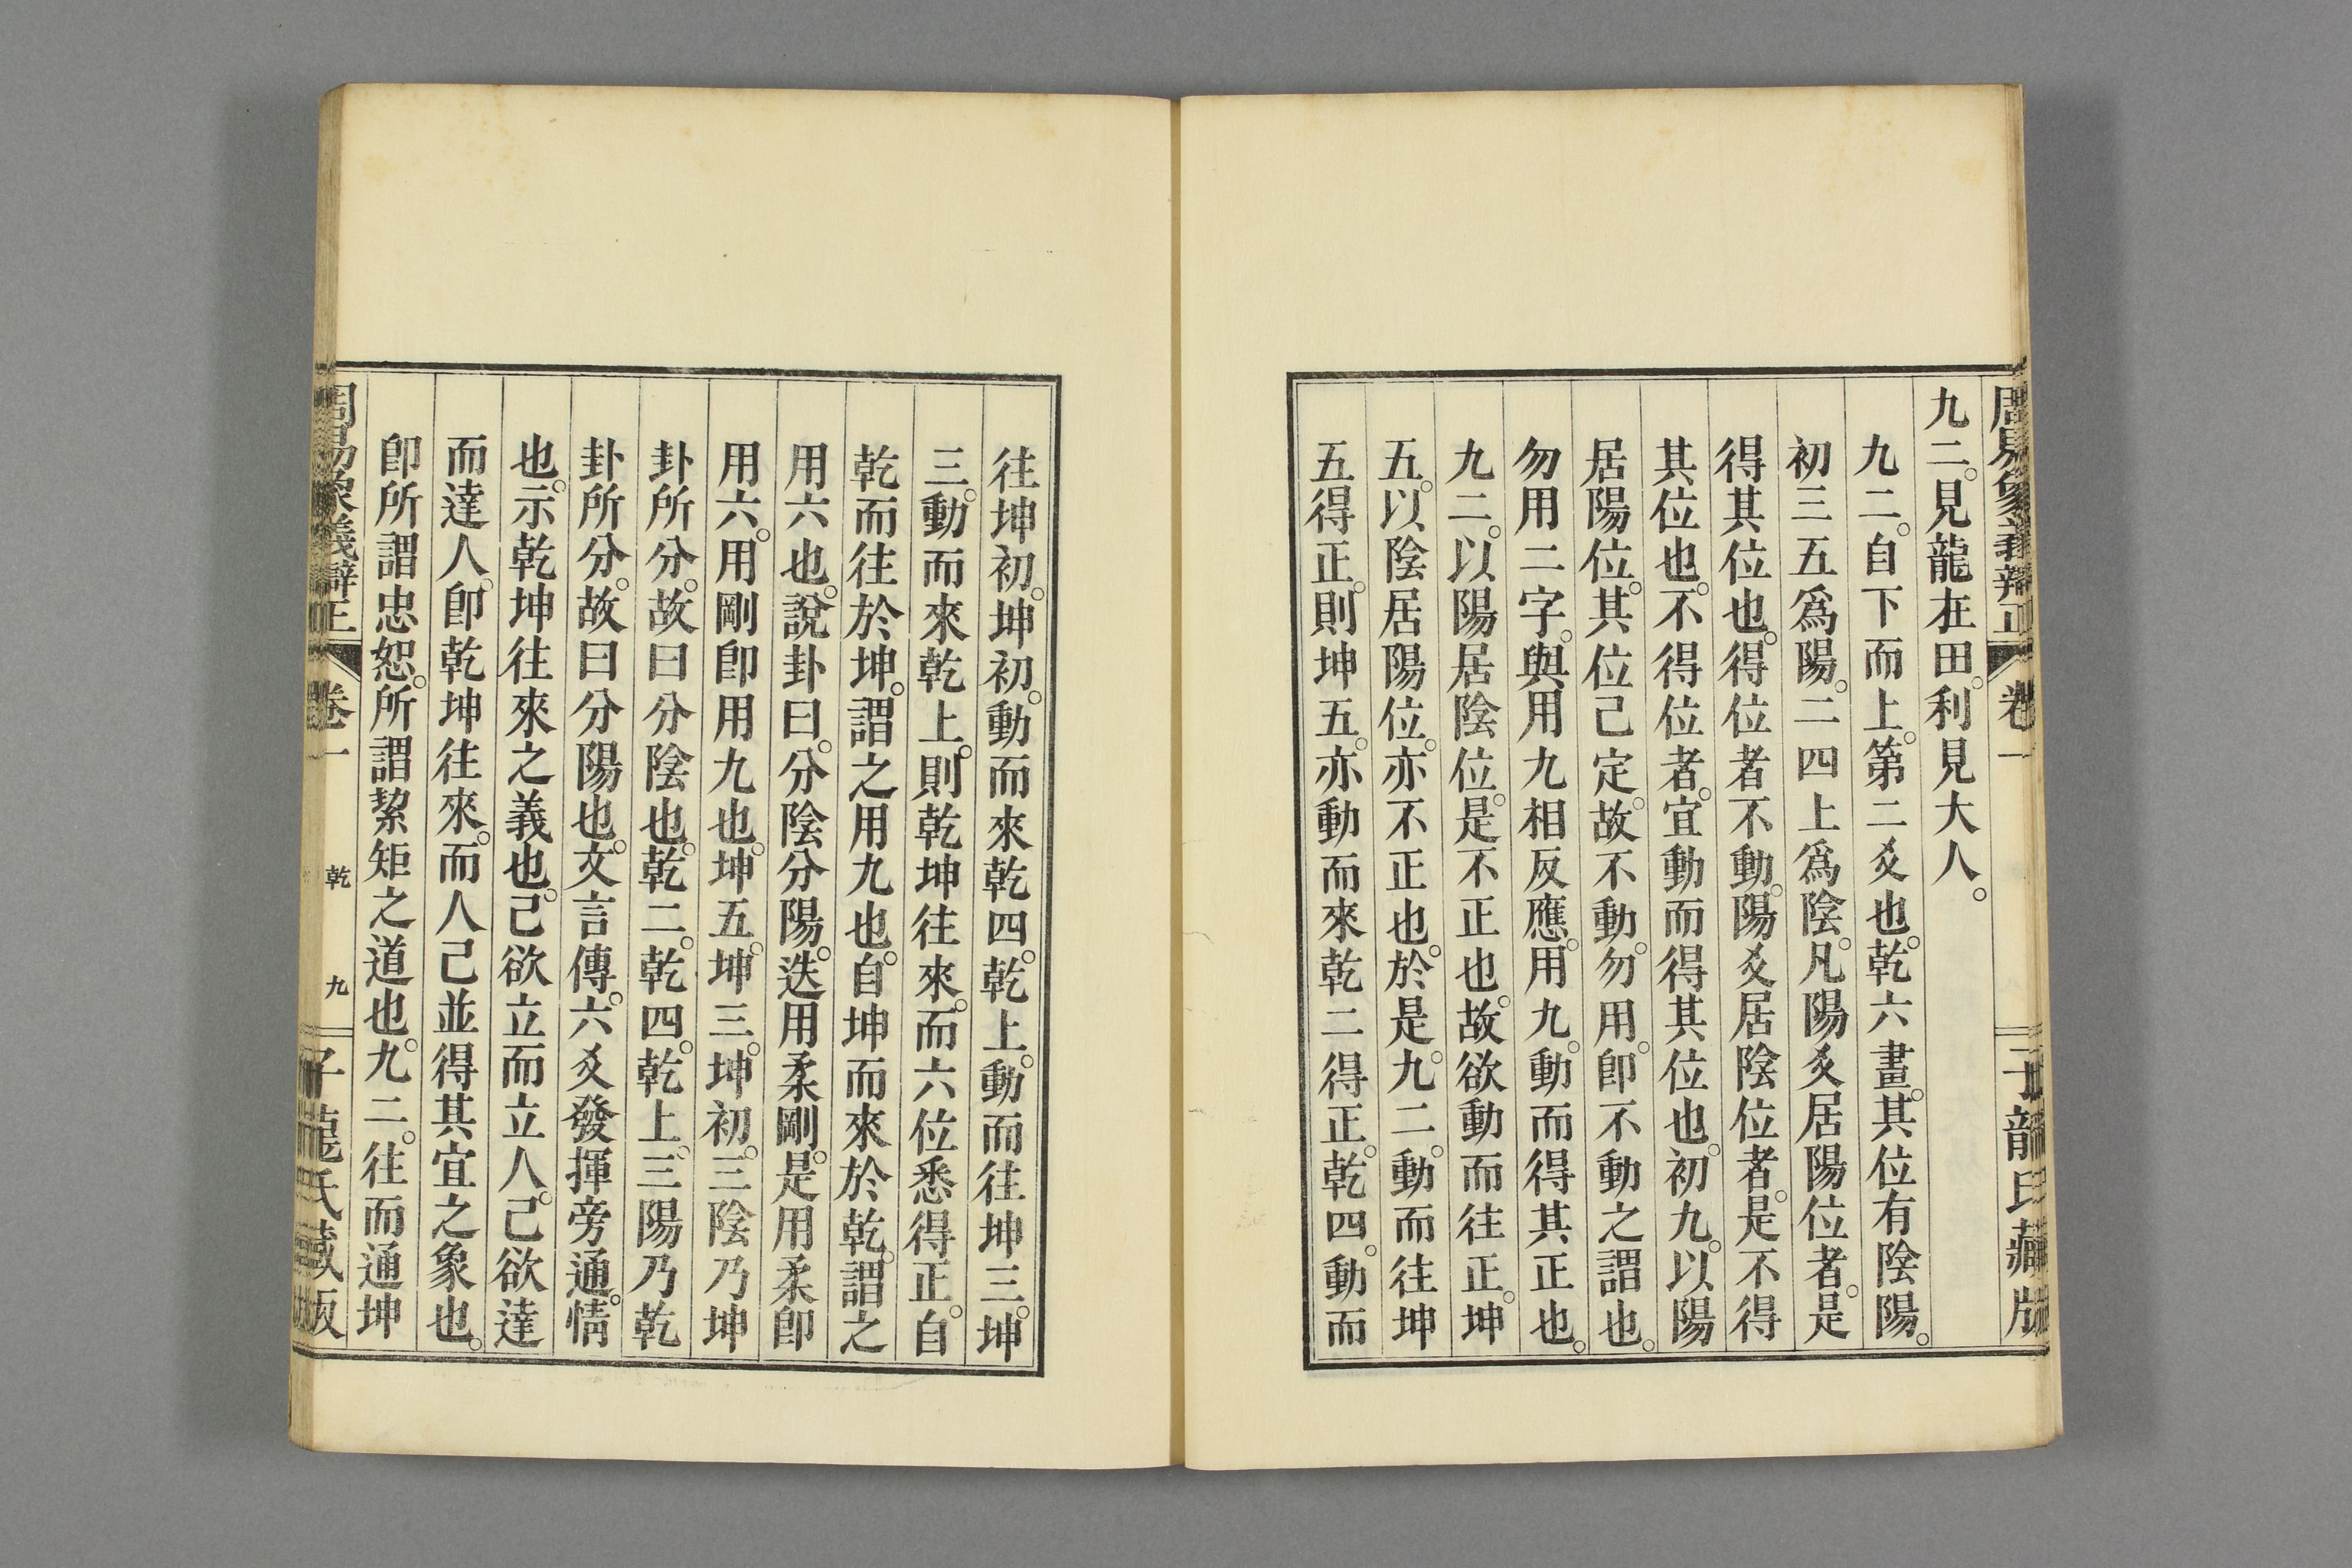 周易象義辯正 卷一 子龍氏藏版
九二。見龍在田。利見大人。
九二。自下而上。第二爻也。乾六畫。其位有陰陽。
初三五爲陽。二四上爲陰。凡陽爻居陽位者。是
得其位也。得位者不動。陽爻居陰位者。是不得
其位也。不得位者。宜動而得其位也。初九。以陽
居陽位。其位已定。故不動。勿用。卽不動之謂也。
勿用二字。與用九相反應。用九。動而得其正也。
九二。以陽居陰位。是不正也。故欲動而往正。坤
五。以陰居陽位。亦不正也。於是。九二。動而往坤
五得正。則坤五。亦動而來乾二得正。乾四。動而
往坤初。坤初。動而來乾四。乾上。動而往坤三。坤
三。動而來乾上。則乾坤往來。而六位悉得正。自
乾而往於坤。謂之用九也。自坤而來於乾。謂之
用六也。說卦曰。分陰分陽。迭用柔剛。是用柔卽
用六。用剛卽用九也。坤五。坤三。坤初。三陰乃坤
卦所分。故曰分陰也。乾二。乾四。乾上。三陽乃乾
卦所分。故曰分陽也。文言傳。六爻發揮旁通。情
也。示乾坤往來之義也。己欲立而立人。己欲達
而達人。卽乾坤往來。而人己並得其宜之象也。
卽所謂忠恕。所謂絜矩之道也。九二。往而通坤
周易象義辯正 卷一 乾 九 子龍氏藏版